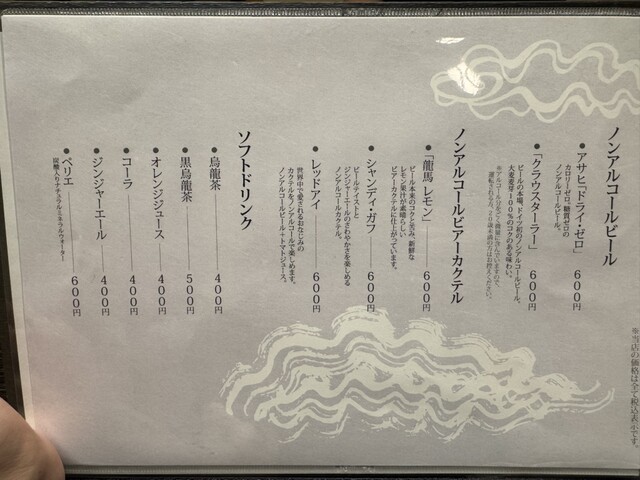 ノンアルコールビール
●アサヒ「ドライ・ゼロ」 600円
カロリーゼロ、糖質ゼロの
ノンアルコールビール。
●「クラウスターラー」 600円
ビールの本場、ドイツ初のノンアルコールビール。
大麦麦芽100%のコクのある味わい。
ノンアルコールビアーカクテル
●「龍馬レモン」 600円
ビール本来のコクと苦み、新鮮な
レモン果汁が素晴らしい
ビアーカクテルに仕上がっています。
●シャンディ・ガフ 600円
ビールテイストと
ジンジャーエールのさわやかさを楽しめる
ノンアルコールカクテル。
●レッドアイ 600円
世界中で愛されるおなじみの
カクテルをノンアルコールで楽しめます。
ノンアルコールビール+トマトジュース。
ソフトドリンク
●烏龍茶 400円
●黒烏龍茶 500円
●オレンジジュース 400円
●コーラ 400円
●ジンジャーエール 400円
●ペリエ 600円
炭酸入りナチュラルミネラルウォーター
※当店の価格は全て税込表示です。